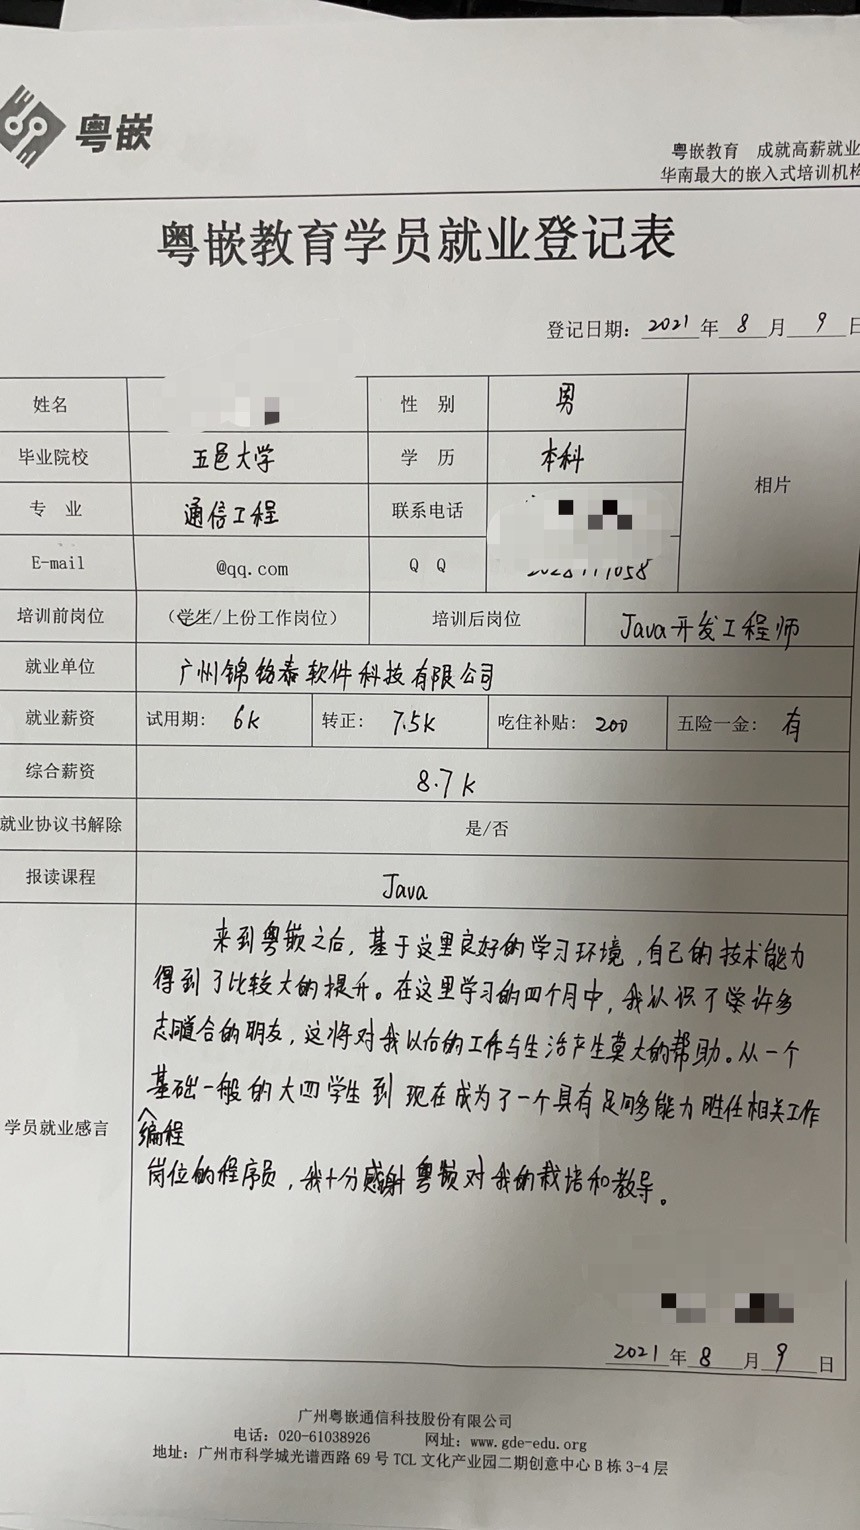 粤嵌
粤嵌教育 成就高薪就业
华南最大的嵌入式培训机构
粤嵌教育学员就业登记表
登记日期: 2021 年 8 月 9 日
姓名 性 别 男
毕业院校 五邑大学 学 历 本科
专 业 通信工程 联系电话
相片
E-mail @qq.com Q Q
培训前岗位 (学生/上份工作岗位) 培训后岗位 Java开发工程师
就业单位 广州锦钧泰软件科技有限公司
就业薪资 试用期: 6k 转正: 7.5k 吃住补贴: 200 五险一金: 有
综合薪资 8.7k
就业协议书解除 是/否
报读课程 Java
学员就业感言
来到粤嵌之后,基于这里良好的学习环境,自己的技术能力
得到了比较大的提升。在这里学习的四个月中,我认识了许多
志同道合的朋友,这将对我以后的工作与生活产生莫大的帮助。从一个
编程
基础一般的大四学生到现在成为了一个具有足够能力胜任相关工作
岗位的程序员,我十分感谢粤嵌对我的栽培和教导。
2021 年 8 月 9 日
广州粤嵌通信科技股份有限公司
电话: 020-61038926 网址: www.gde-edu.org
地址: 广州市科学城光谱西路 69 号 TCL 文化产业园二期创意中心 B 栋 3-4 层